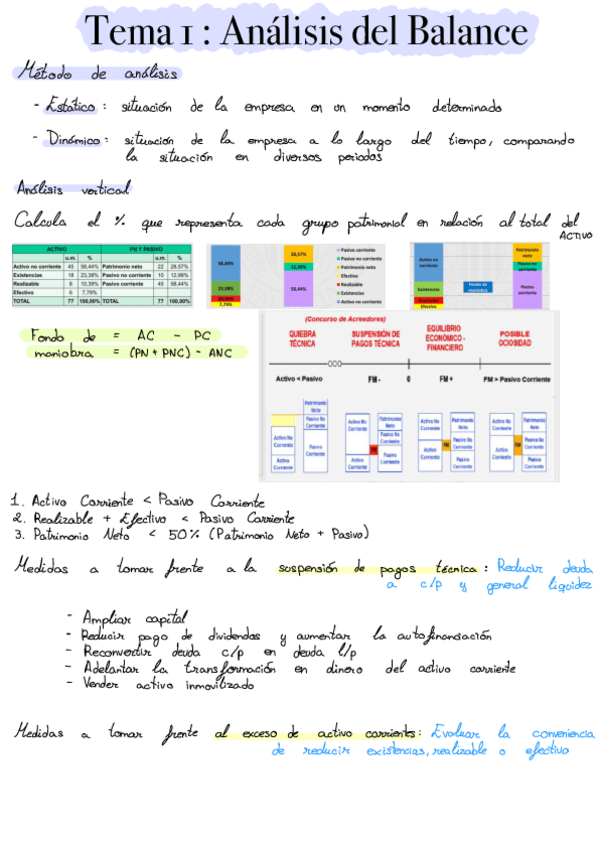 Tema 1 : Análisis del Balance
Método de análisis
- Estático : situación de la empresa en un momento determinado
- Dinámico : situación de la empresa a lo largo del tiempo, comparando
la situación en diversos periodos
Análisis vertical
Calcula el % que representa cada grupo patrimonial en relación al total del
ACTIVO
ACTIVO PN Y PASIVO
u.m. % u.m. %
Activo no corriente 45 58,44% Patrimonio neto 22 28,57%
Existencias 18 23,38% Pasivo no corriente 10 12,99%
Realizable 8 10,39% Pasivo corriente 45 58,44%
Efectivo 6 7,79%
TOTAL 77 100,00% TOTAL 77 100,00%
58,44%
23,38%
7,79%
28,57%
12,99%
58,44%
Pasivo corriente
Pasivo no corriente
Patrimonio neto
Efectivo
Realizable
Existencias
Activo no corriente
Activo no corriente
Existencias
Realizable
Efectivo
Fondo de maniobra
Patrimonio neto
Pasivo no corriente
Pasivo corriente
Fondo de = AC - PC
maniobra = (PN + PNC) - ANC
(Concurso de Acreedores)
QUIEBRA TÉCNICA
SUSPENSIÓN DE PAGOS TÉCNICA
EQUILIBRIO ECONÓMICO - FINANCIERO
POSIBLE OCIOSIDAD
Activo < Pasivo FM - 0 FM + FM > Pasivo Corriente
Activo No Corriente
Activo Corriente
Patrimonio Neto
Pasivo No Corriente
Pasivo Corriente
Activo No Corriente
Activo Corriente
FM
Patrimonio Neto
Pasivo No Corriente
Pasivo Corriente
Activo No Corriente
Activo Corriente
FM
Patrimonio Neto
Pasivo No Corriente
Pasivo Corriente
Activo No Corriente
Activo Corriente
FM
Patrimonio Neto
Pasivo No Corriente
Pasivo Corriente
1. Activo Corriente < Pasivo Corriente
2. Realizable + Efectivo < Pasivo Corriente
3. Patrimonio Neto < 50% (Patrimonio Neto + Pasivo)
Medidas a tomar frente a la suspensión de pagos técnica : Reducir deuda
a c/p y general liquidez
- Ampliar capital
- Reducir pago de dividendos y aumentar la autofinanciación
- Reconvertir deuda c/p en deuda l/p
- Adelantar la transformación en dinero del activo corriente
- Vender activo inmovilizado
Medidas a tomar frente al exceso de activo corrientes : Evaluar la conveniencia
de reducir existencias, realizable o efectivo